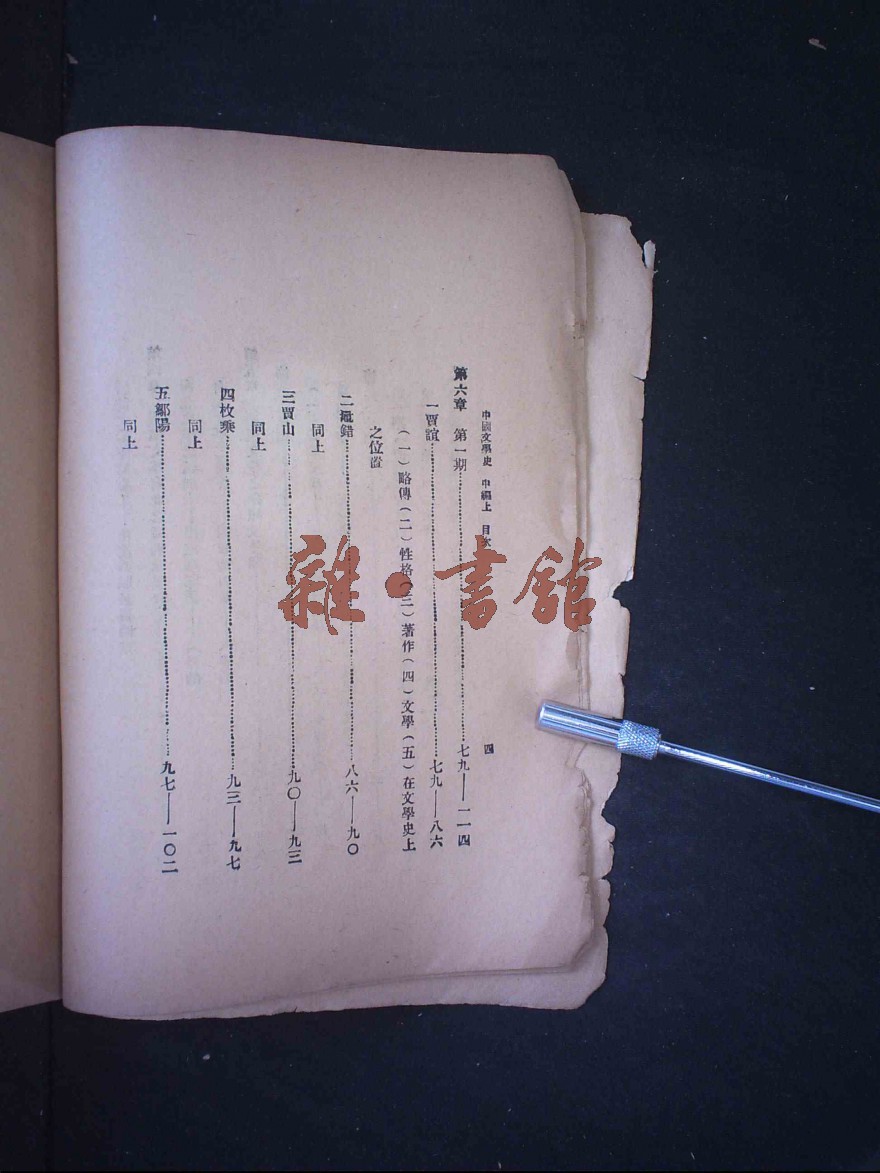 中國文學史 中編上 目次 四
第六章 第一期…………七九——一一四
一賈誼…………七九——八六
(一)略傳(二)性格(三)著作(四)文學(五)在文學史上
之位置
二鼂錯…………八六——九〇
同上
三賈山…………九〇——九三
同上
四枚乘…………九三——九七
同上
五鄒陽…………九七——一〇二
同上
雜·書館